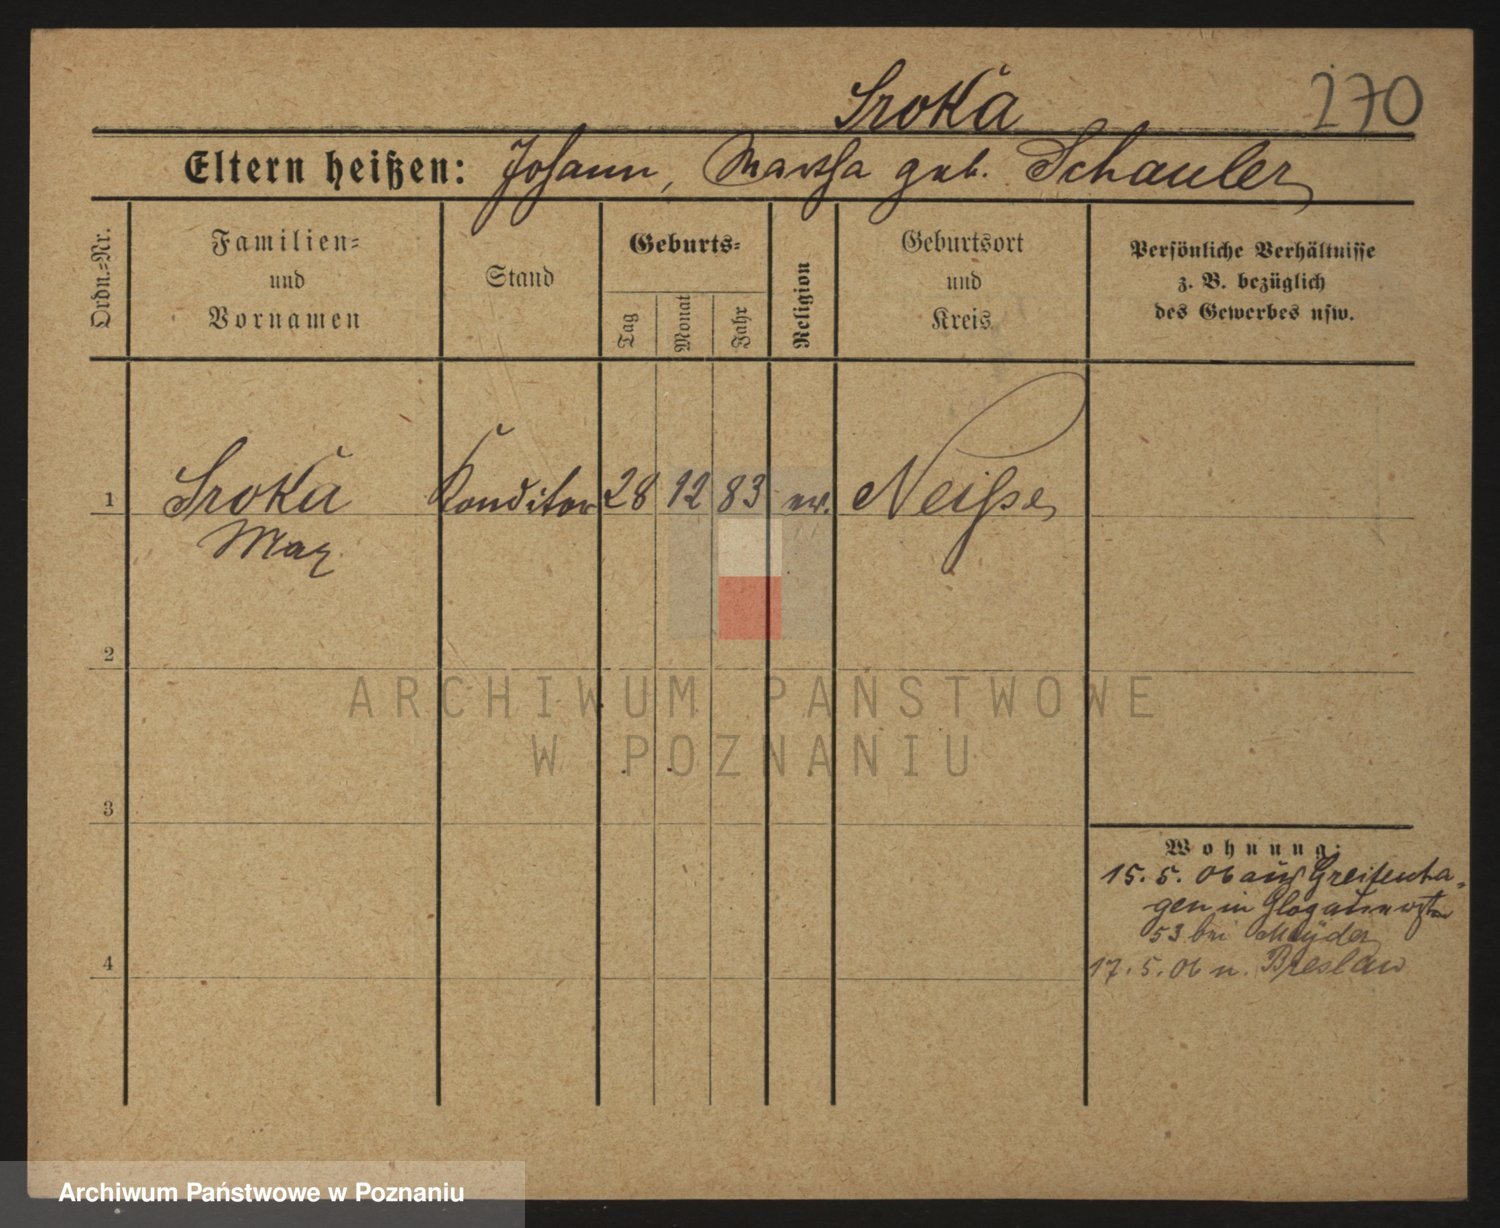 Sroka 270
Eltern heißen: Johann, Martha geb. Schauler
Ordn.=Nr.
Familien=
und
Vornamen
Stand
Geburts=
Tag
Monat
Jahr
Religion
Geburtsort
und
Kreis
Persönliche Verhältnisse
z. B. bezüglich
des Gewerbes usw.
1 Sroka Konditor 28 12 83 ev. Neiße
Max
2
3
4
Wohnung:
15. 5. 06 aus Greifenha-
gen in Glogauer
53 bei Meyder
17. 5. 06 n. Breslau
ARCHIWUM PAŃSTWOWE
W POZNANIU
Archiwum Państwowe w Poznaniu